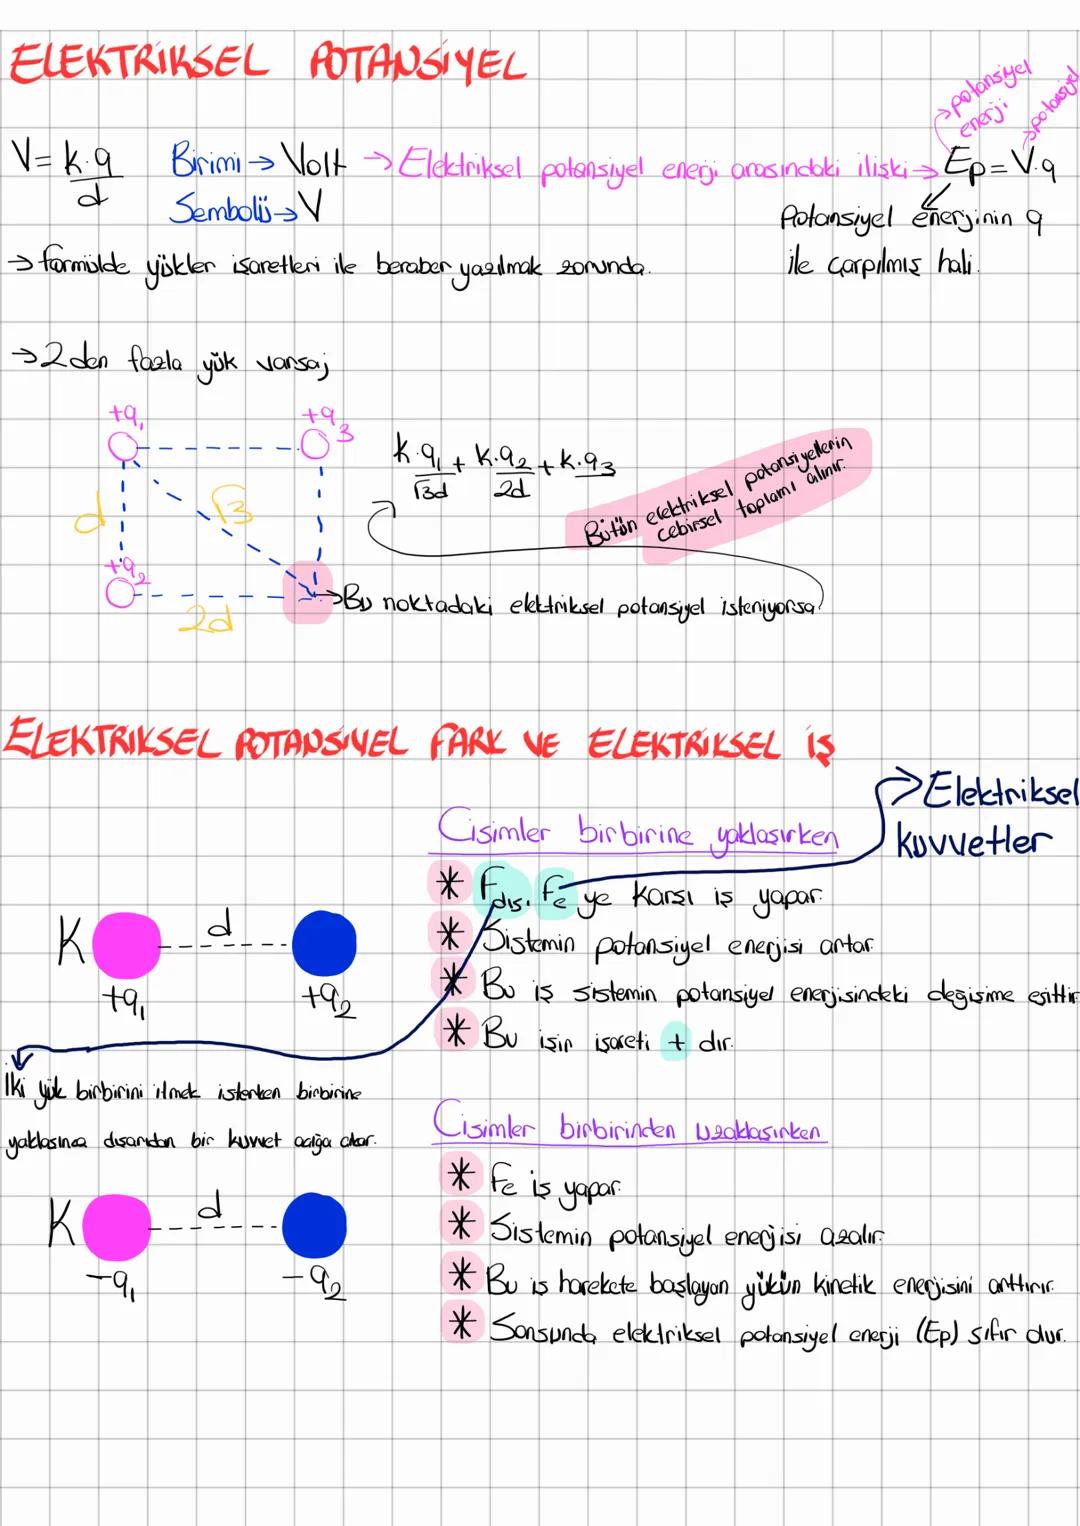 ELEKTRİKSEL POTANSİYEL
→potansiyel enerji
→potansiyel
V= k.q / d
Birimi → Volt → Elektriksel potansiyel enerji arasındaki ilişki → Ep = V.q
Sembolü → V
Potansiyel enerjinin q
ile çarpılmış hali.
→ formülde yükler işaretleri ile beraber yazılmak zorunda.
→ 2 den fazla yük varsa;
+q1
+q3
k.q1 / √3d + k.q2 / 2d + k.q3
Bütün elektriksel potansiyellerin
cebirsel toplamı alınır.
d
√3
+q2
2d
→ Bu noktadaki elektriksel potansiyel isteniyorsa?
ELEKTRIKSEL POTANSIYEL FARK VE ELEKTRIKSEL İŞ
→ Elektriksel
kuvvetler
Cisimler birbirine yaklaşırken
* Fdış, Fe ye karşı iş yapar.
* Sistemin potansiyel enerjisi artar.
* Bu iş sistemin potansiyel enerjisindeki değişime eşittir
* Bu işin işareti + dır.
K
d
+q1
+q2
İki yük birbirini itmek isterken birbirine
yaklaşınca dışarıdan bir kuvvet açığa çıkar.
Cisimler birbirinden uzaklaşırken
* Fe iş yapar.
* Sistemin potansiyel enerjisi azalır.
* Bu iş harekete başlayan yükün kinetik enerjisini arttırır.
* Sonsunda elektriksel potansiyel enerji (Ep) sıfır olur.
K
d
-q1
-q2